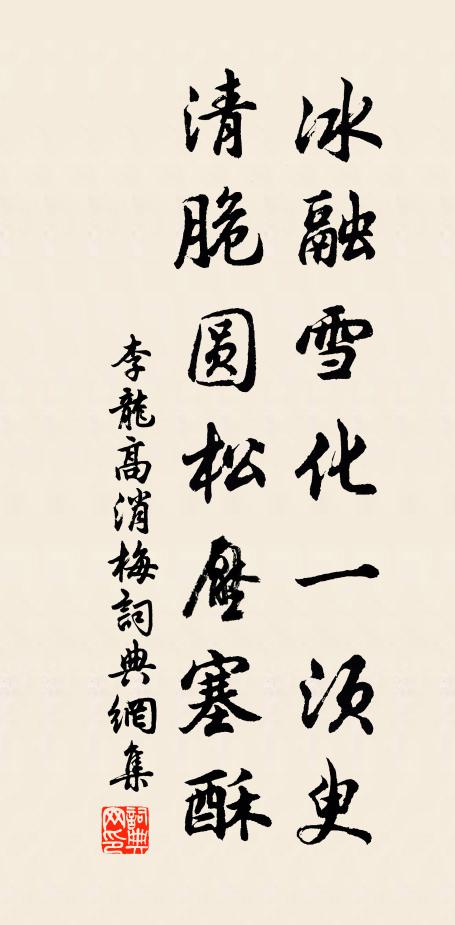 冰融雪化一须臾
清脆圆松压塞酥
李龍高消梅詞典網集
詞典网印